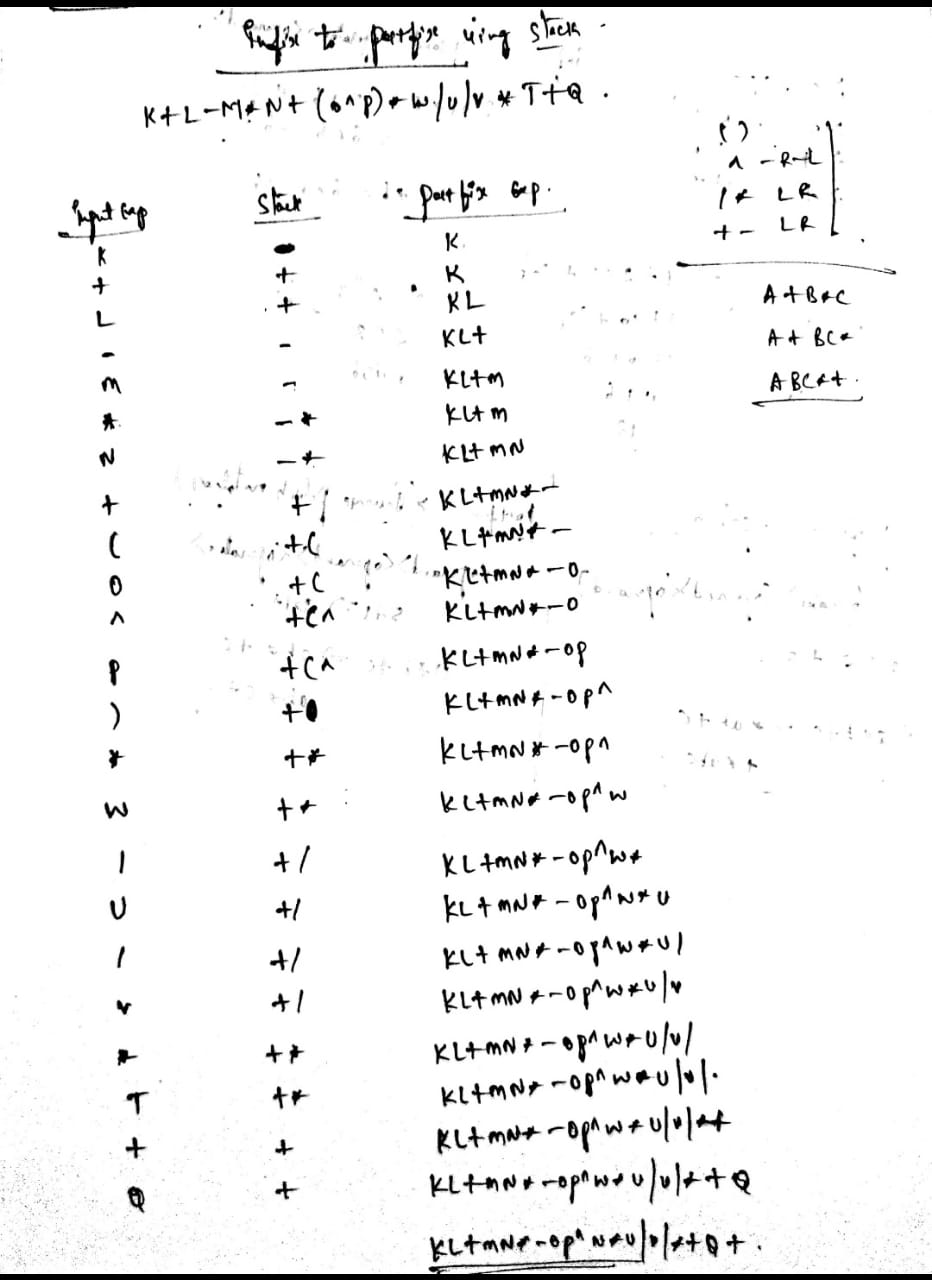 Infix to postfix using stack
K+L-M*N+(O^P)*W/U/V*T+Q.
( )
^ -R-L
/* LR
+- LR
A+B*C
A+BC*
ABC*+.
Input Exp Stack Postfix Exp.
K K.
+ + K
L + KL
- - KL+
M - KL+M
* -* KL+M
N -* KL+MN
+ + KL+MN*-
( +( KL+MN*-
O +( KL+MN*-O
^ +(^ KL+MN*-O
P +(^ KL+MN*-OP
) + KL+MN*-OP^
* +* KL+MN*-OP^
W +* KL+MN*-OP^W
/ +/ KL+MN*-OP^W*
U +/ KL+MN*-OP^W*U
/ +/ KL+MN*-OP^W*U/
V +/ KL+MN*-OP^W*U/V
* +* KL+MN*-OP^W*U/V/
T +* KL+MN*-OP^W*U/V/.
+ + KL+MN*-OP^W*U/V/*+
Q + KL+MN*-OP^W*U/V/*+Q
KL+MN*-OP^W*U/V/*+Q+.